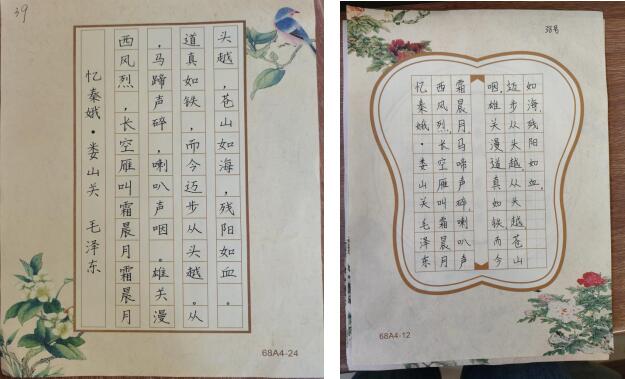 39
忆秦娥·娄山关 毛泽东
西风烈,长空雁叫霜晨月霜晨月
,马蹄声碎,喇叭声咽。雄关漫
道真如铁,而今迈步从头越。从
头越,苍山如海,残阳如血。
68A4-24
38号
忆秦娥·娄山关毛泽东
西风烈,长空雁叫霜晨月
霜晨月,马啼声碎,喇叭声
咽,雄关漫道真如铁而今
迈步从头越,从头越,苍山
如海,残阳如血。
68A4-12